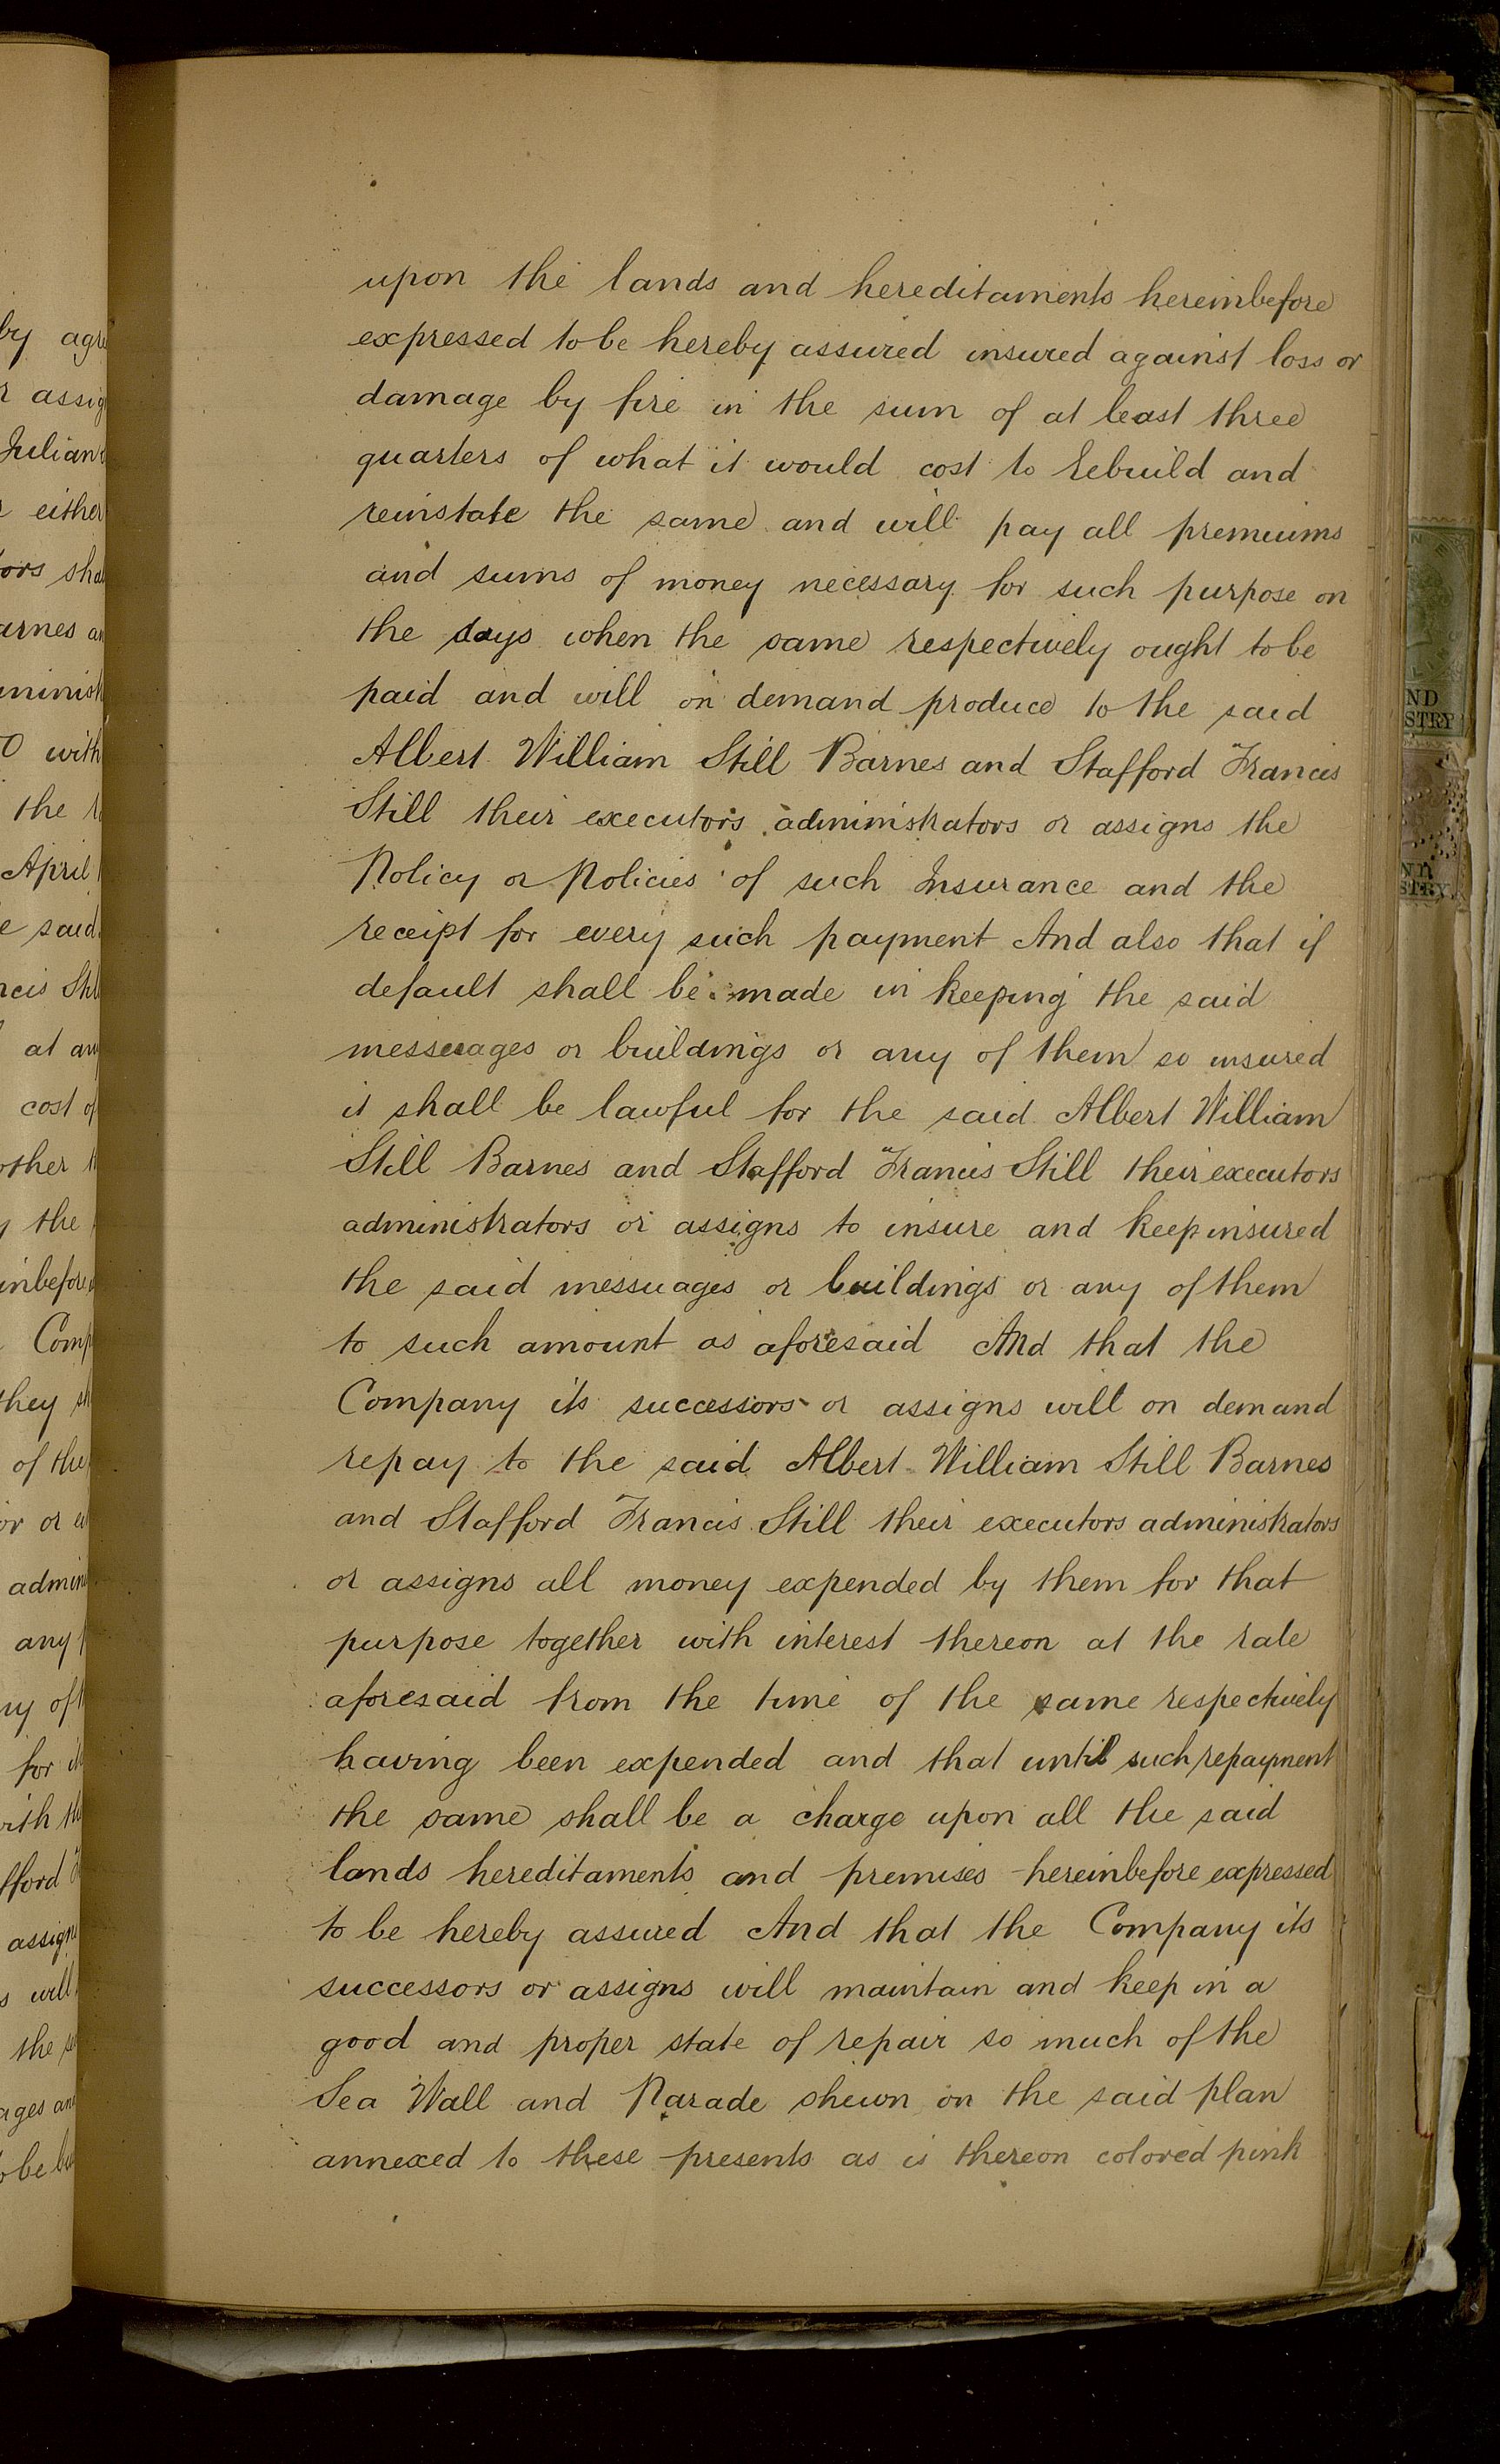 upon the lands and hereditaments hereinbefore
expressed to be hereby assured insured against loss or
damage by fire in the sum of at least three
quarters of what it would cost to rebuild and
reinstate the same and will pay all premiums
and sums of money necessary for such purpose on
the days when the same respectively ought to be
paid and will on demand produce to the said
Albert William Still Barnes and Stafford Francis
Still their executors administrators or assigns the
Policy or Policies of such Insurance and the
receipt for every such payment And also that if
default shall be made in keeping the said
messuages or buildings or any of them so insured
it shall be lawful for the said Albert William
Still Barnes and Stafford Francis Still their executors
administrators or assigns to insure and keep insured
the said messuages or buildings or any of them
to such amount as aforesaid And that the
Company its successors or assigns will on demand
repay to the said Albert William Still Barnes
and Stafford Francis Still their executors administrators
or assigns all money expended by them for that
purpose together with interest thereon at the rate
aforesaid from the time of the same respectively
having been expended and that until such repayment
the same shall be a charge upon all the said
lands hereditaments and premises hereinbefore expressed
to be hereby assured And that the Company its
successors or assigns will maintain and keep in a
good and proper state of repair so much of the
Sea Wall and Parade shewn on the said plan
annexed to these presents as is thereon colored pink